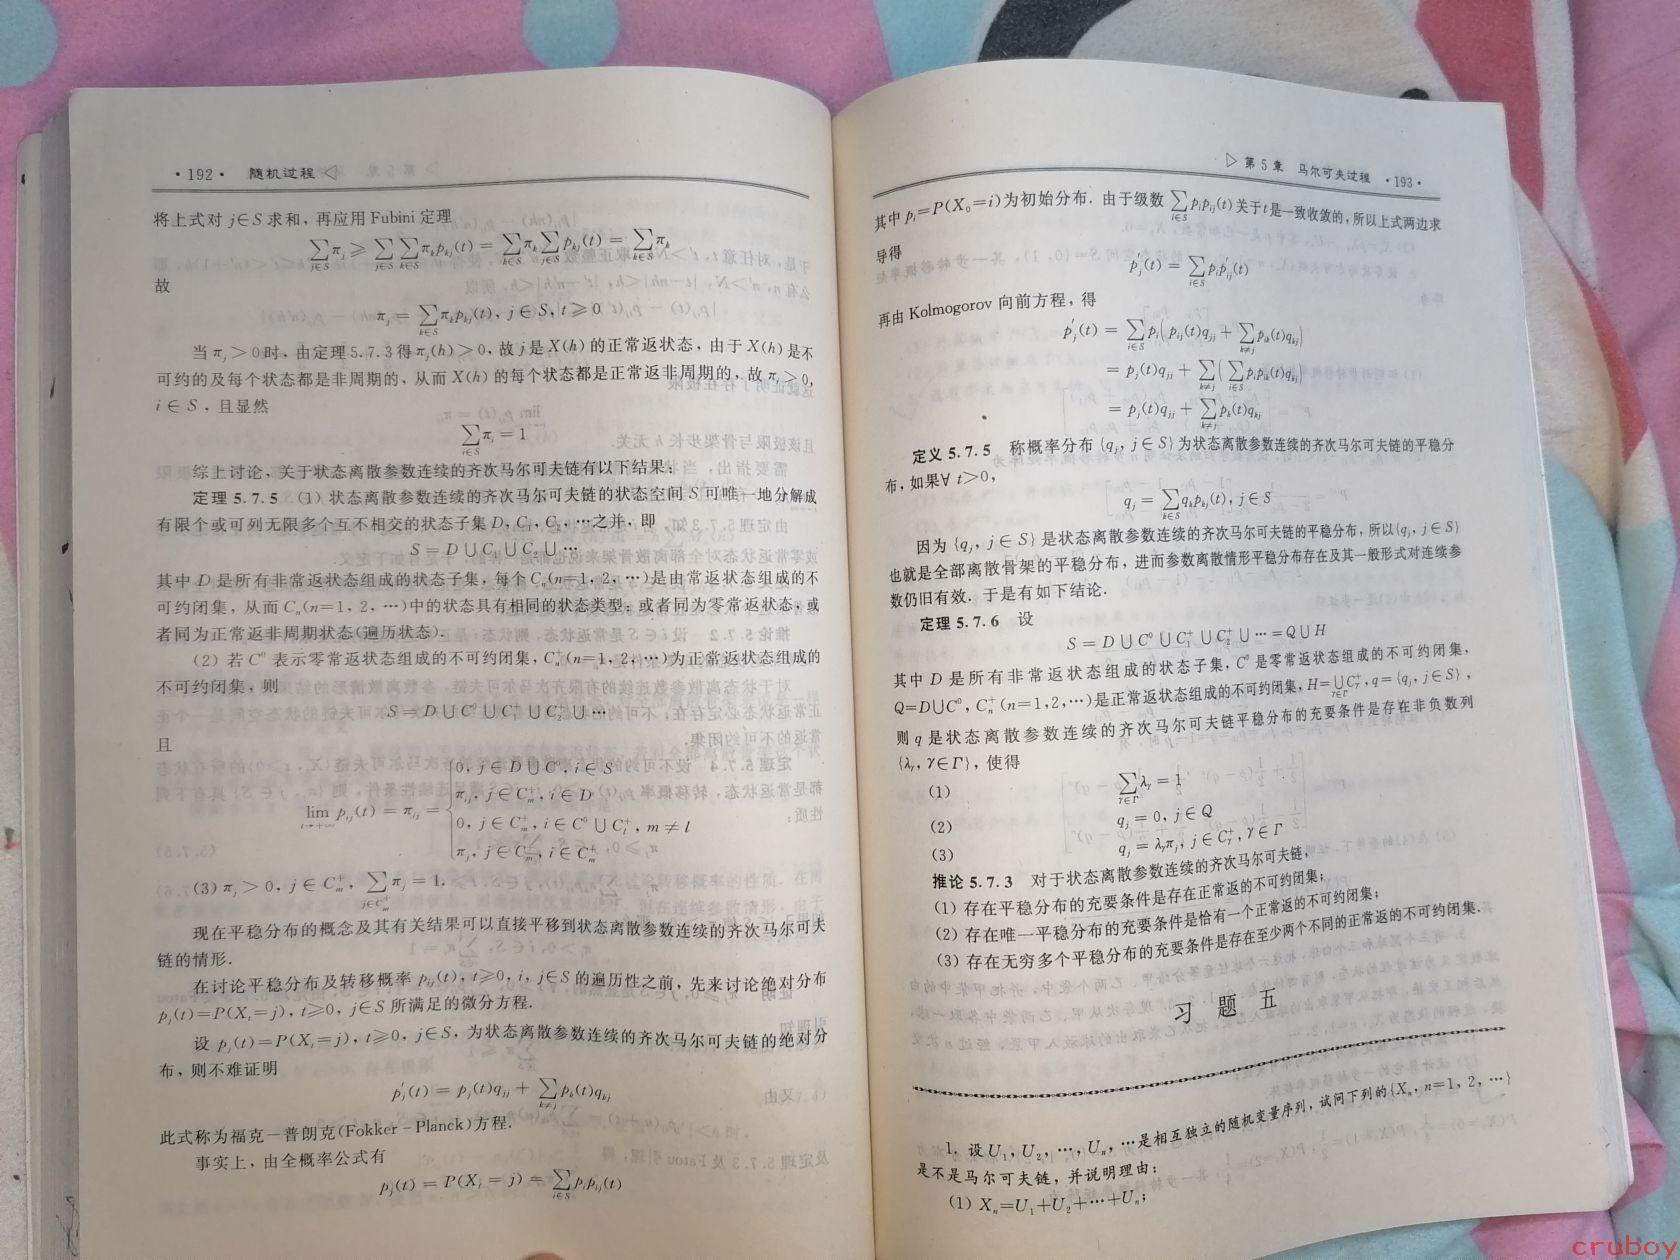 ·192· 随机过程 ◁
将上式对 j∈S 求和，再应用 Fubini 定理
∑_{j∈S} π_j ⩾ ∑_{j∈S} ∑_{k∈S} π_k p_{kj}(t) = ∑_{k∈S} π_k ∑_{j∈S} p_{kj}(t) = ∑_{k∈S} π_k
故
π_j = ∑_{k∈S} π_k p_{kj}(t), j∈S, t⩾0
当 π_j>0 时，由定理 5.7.3 得 π_j(h)>0，故 j 是 X(h) 的正常返状态，由于 X(h) 是不
可约的及每个状态都是非周期的，从而 X(h) 的每个状态都是正常返非周期的，故 π_i>0，
i∈S，且显然
∑_{i∈S} π_i = 1
综上讨论，关于状态离散参数连续的齐次马尔可夫链有以下结果：
定理 5.7.5 (1) 状态离散参数连续的齐次马尔可夫链的状态空间 S 可唯一地分解成
有限个或可列无限多个互不相交的状态子集 D, C₁, C₂, …之并，即
S = D∪C₁∪C₂∪…
其中 D 是所有非常返状态组成的状态子集，每个 C_n(n=1, 2, …)是由常返状态组成的不
可约闭集，从而 C_n(n=1, 2, …)中的状态具有相同的状态类型：或者同为零常返状态，或
者同为正常返非周期状态(遍历状态).
(2) 若 C⁰ 表示零常返状态组成的不可约闭集，C_n⁺(n=1, 2, …)为正常返状态组成的
不可约闭集，则
S = D∪C⁰∪C₁⁺∪C₂⁺∪…
且
lim_{t→+∞} p_{ij}(t) = π_{ij} = {
0, j∈D∪C⁰, i∈S
π_{ij}, j∈C_m⁺, i∈D
0, j∈C_m⁺, i∈C⁰∪C_l⁺, m≠l
π_j, j∈C_m⁺, i∈C_m⁺
(3) π_j>0, j∈C_m⁺, ∑_{j∈C_m⁺} π_j = 1.
现在平稳分布的概念及其有关结果可以直接平移到状态离散参数连续的齐次马尔可夫
链的情形.
在讨论平稳分布及转移概率 p_{ij}(t), t⩾0, i, j∈S 的遍历性之前，先来讨论绝对分布
p_j(t)=P(X_t=j), t⩾0, j∈S 所满足的微分方程.
设 p_j(t)=P(X_t=j), t⩾0, j∈S，为状态离散参数连续的齐次马尔可夫链的绝对分
布，则不难证明
p′_j(t) = p_j(t)q_{jj} + ∑_{k≠j} p_k(t)q_{kj}
此式称为福克－普朗克(Fokker－Planck)方程.
事实上，由全概率公式有
p_j(t) = P(X_t = j) = ∑_{i∈S} p_i p_{ij}(t)
▷ 第 5 章 马尔可夫过程 ·193·
其中 p_i=P(X₀=i)为初始分布. 由于级数 ∑_{i∈S} p_i p_{ij}(t) 关于 t 是一致收敛的，所以上式两边求
导得
p′_j(t) = ∑_{i∈S} p_i p′_{ij}(t)
再由 Kolmogorov 向前方程，得
p′_j(t) = ∑_{i∈S} p_i(p_{ij}(t)q_{jj} + ∑_{k≠j} p_{ik}(t)q_{kj})
= p_j(t)q_{jj} + ∑_{k≠j}(∑_{i∈S} p_i p_{ik}(t)q_{kj})
= p_j(t)q_{jj} + ∑_{k≠j} p_k(t)q_{kj}
定义 5.7.5 称概率分布 {q_j, j∈S} 为状态离散参数连续的齐次马尔可夫链的平稳分
布，如果∀ t>0，
q_j = ∑_{k∈S} q_k p_{kj}(t), j∈S
因为 {q_j, j∈S} 是状态离散参数连续的齐次马尔可夫链的平稳分布，所以{q_j, j∈S}
也就是全部离散骨架的平稳分布，进而参数离散情形平稳分布存在及其一般形式对连续参
数仍旧有效. 于是有如下结论.
定理 5.7.6 设
S = D∪C⁰∪C₁⁺∪C₂⁺∪…=Q∪H
其中 D 是所有非常返状态组成的状态子集，C⁰ 是零常返状态组成的不可约闭集，
Q=D∪C⁰, C_n⁺(n=1,2,…)是正常返状态组成的不可约闭集, H=∪_{γ∈Γ} C_γ⁺, q={q_j, j∈S}，
则 q 是状态离散参数连续的齐次马尔可夫链平稳分布的充要条件是存在非负数列
{λ_γ, γ∈Γ}，使得
(1) ∑_{γ∈Γ} λ_γ = 1
(2) q_j = 0, j∈Q
(3) q_j = λ_γ π_j, j∈C_γ⁺, γ∈Γ
推论 5.7.3 对于状态离散参数连续的齐次马尔可夫链，
(1) 存在平稳分布的充要条件是存在正常返的不可约闭集；
(2) 存在唯一平稳分布的充要条件是恰有一个正常返的不可约闭集；
(3) 存在无穷多个平稳分布的充要条件是存在至少两个不同的正常返的不可约闭集.
习 题 五
1. 设 U₁, U₂, …, U_n, …是相互独立的随机变量序列，试问下列的{X_n, n=1, 2, …}
是不是马尔可夫链，并说明理由：
(1) X_n=U₁+U₂+…+U_n；
cruboy